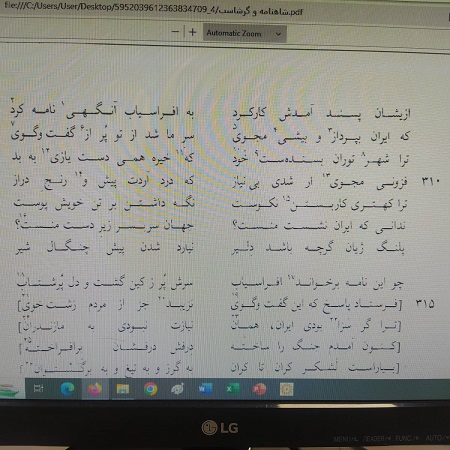 file:///C:/Users/User/Desktop/5952039612363834709_4/شاهنامه و گرشاسب.pdf
Automatic Zoom
ازیشان پسند آمدش کارکرد به افراسیاب آنگهی نامه کرد
که ایران بپرداز و بیشی مجوی سر ما شد از تو پُر از گفت وگوی
ترا شهر توران بسنده‌ست خود که خیره همی دست یازی به بد
۳۱۰ فزونی مجوی ار شدی بی نیاز که درد آردت پیش و رنج دراز
ترا کهتری کار بستن نکوست نگه داشتن بر تن خویش پوست
ندانی که ایران نشست منست؟ جهان سربسر زیر دست منست؟
پلنگ ژیان گرچه باشد دلیر نیارد شدن پیش چنگال شیر
چو این نامه برخواند افراسیاب سرش پر ز کین گشت و دل پرشتاب
۳۱۵ [فرستاد پاسخ که این گفت وگوی نزیبد جز از مردم زشت خوی]
[ترا گر سزا بودی ایران، همان نیازت نبودی به مازندران]
[کنون آمدم جنگ را ساخته درفش درفشان برافراخته]
[بیاراست لشکر کران تا کران به گرز و به تیغ و به
LG